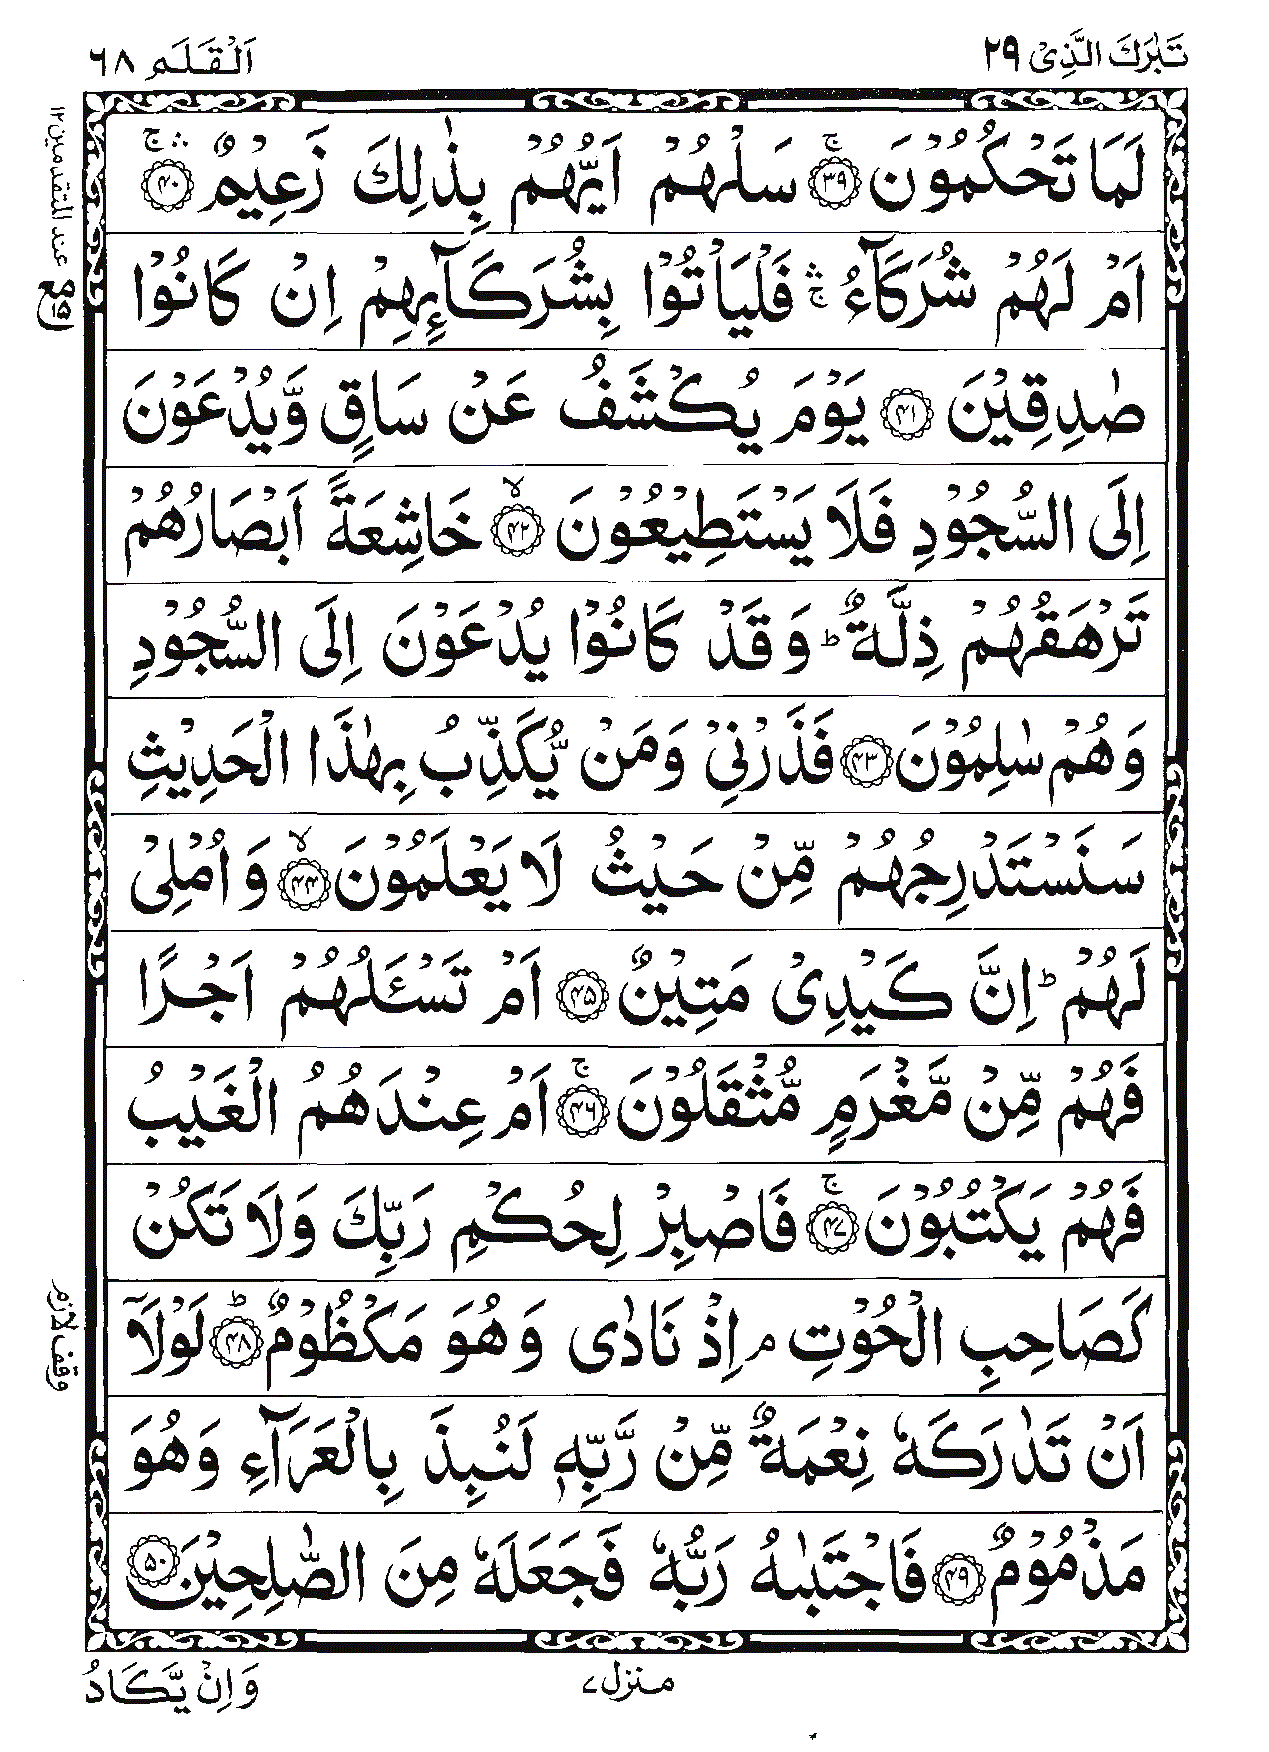 تَبٰرَكَ الَّذِیْ ۲۹
اَلْقَلَم ۶۸
لَمَا تَحْكُمُوْنَ ۚ﴿۳۹﴾ سَلْهُمْ اَیُّهُمْ بِذٰلِكَ زَعِیْمٌ ۛۚ﴿۴۰﴾
اَمْ لَهُمْ شُرَكَآءُ ۛۚ فَلْیَاْتُوْا بِشُرَكَآىِٕهِمْ اِنْ كَانُوْا
صٰدِقِیْنَ ﴿۴۱﴾ یَوْمَ یُكْشَفُ عَنْ سَاقٍ وَّیُدْعَوْنَ
اِلَی السُّجُوْدِ فَلَا یَسْتَطِیْعُوْنَ ۙ﴿۴۲﴾ خَاشِعَةً اَبْصَارُهُمْ
تَرْهَقُهُمْ ذِلَّةٌ ؕ وَقَدْ كَانُوْا یُدْعَوْنَ اِلَی السُّجُوْدِ
وَهُمْ سٰلِمُوْنَ ﴿۴۳﴾ فَذَرْنِیْ وَمَنْ یُّكَذِّبُ بِهٰذَا الْحَدِیْثِ
سَنَسْتَدْرِجُهُمْ مِّنْ حَیْثُ لَا یَعْلَمُوْنَ ۙ﴿۴۴﴾ وَاُمْلِیْ
لَهُمْ ؕ اِنَّ كَیْدِیْ مَتِیْنٌ ﴿۴۵﴾ اَمْ تَسْـَٔلُهُمْ اَجْرًا
فَهُمْ مِّنْ مَّغْرَمٍ مُّثْقَلُوْنَ ۚ﴿۴۶﴾ اَمْ عِنْدَهُمُ الْغَیْبُ
فَهُمْ یَكْتُبُوْنَ ۚ﴿۴۷﴾ فَاصْبِرْ لِحُكْمِ رَبِّكَ وَلَا تَكُنْ
كَصَاحِبِ الْحُوْتِ ۘ اِذْ نَادٰی وَهُوَ مَكْظُوْمٌ ؕ﴿۴۸﴾ لَوْلَاۤ
اَنْ تَدٰرَكَهٗ نِعْمَةٌ مِّنْ رَّبِّهٖ لَنُبِذَ بِالْعَرَآءِ وَهُوَ
مَذْمُوْمٌ ﴿۴۹﴾ فَاجْتَبٰىهُ رَبُّهٗ فَجَعَلَهٗ مِنَ الصّٰلِحِیْنَ ﴿۵۰﴾
مع ۱۵ عند المتقدمین ۱۲
وقف لازم
منزل ۷
وَاِنْ یَّكَادُ